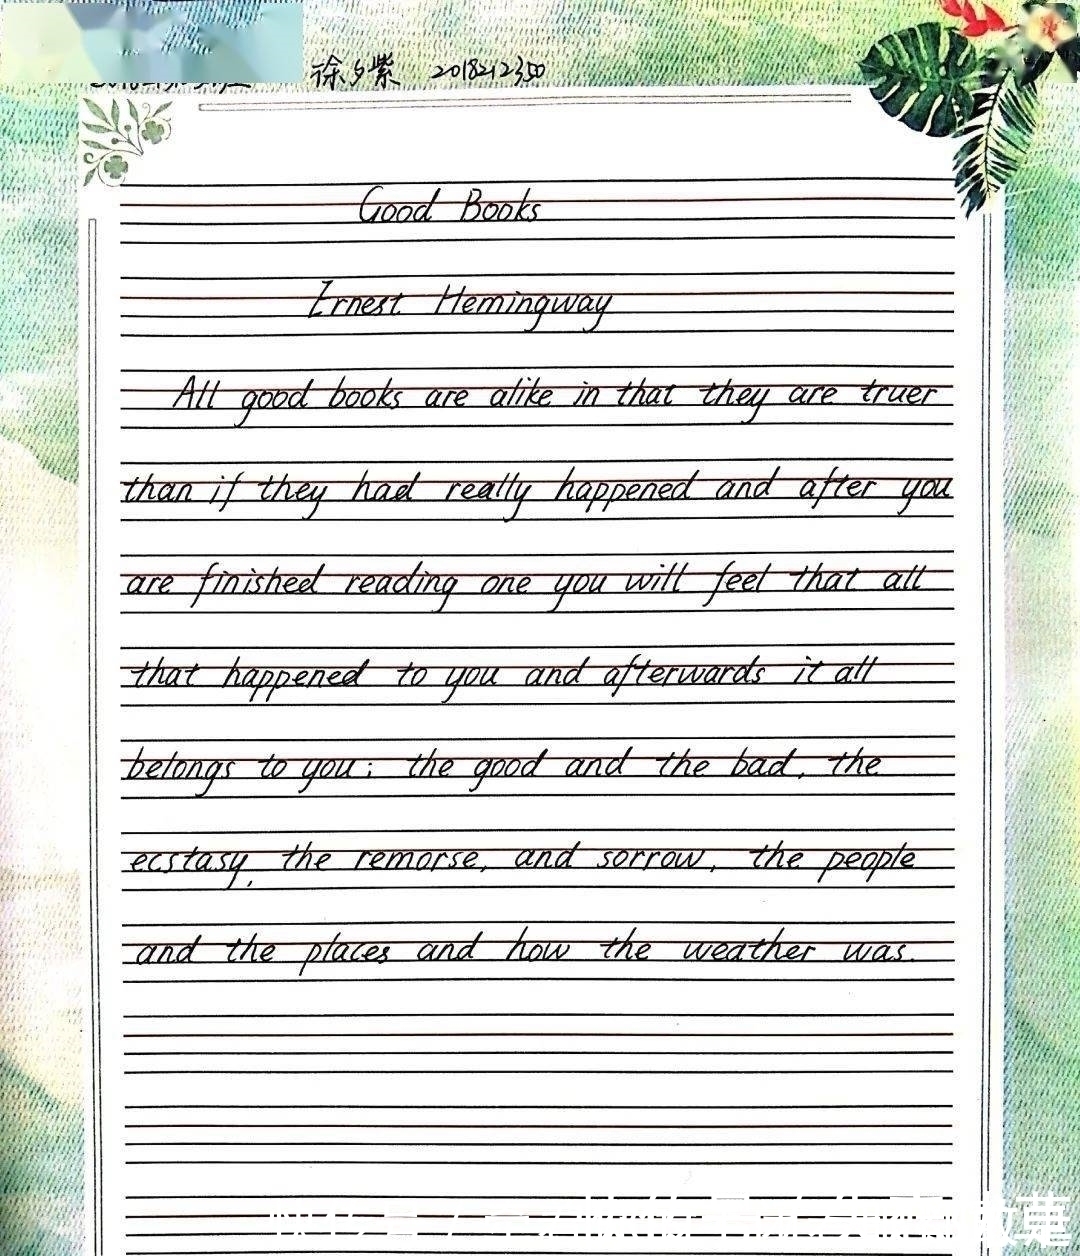 徐夕紫 2018212350
Good Books
Ernest Hemingway
All good books are alike in that they are truer
than if they had really happened and after you
are finished reading one you will feel that all
that happened to you and afterwards it all
belongs to you; the good and the bad, the
ecstasy, the remorse, and sorrow, the people
and the places and how the weather was.